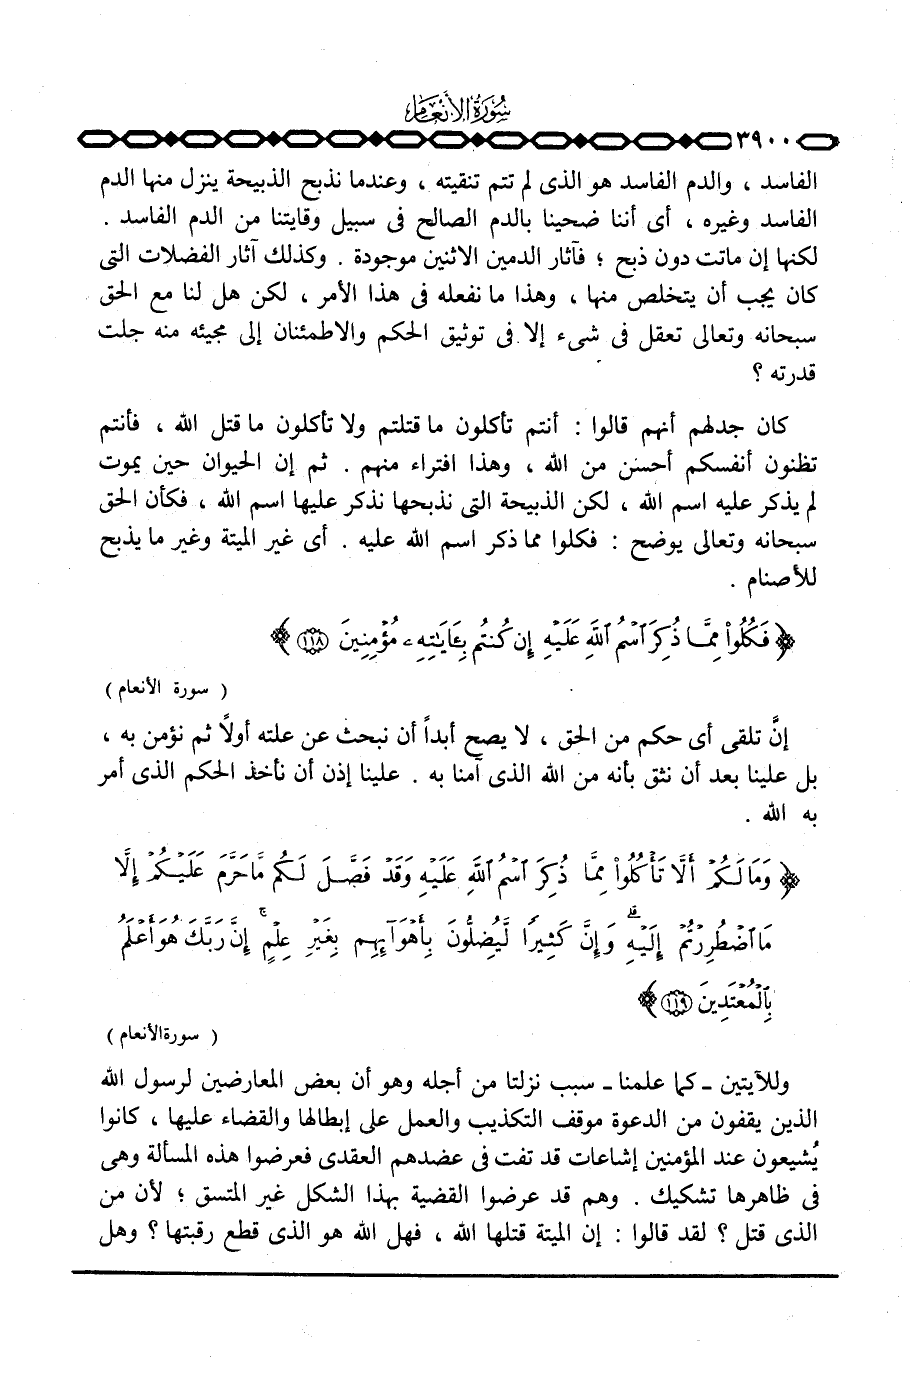 سورة الأنعام
٣٩٠٠
الفاسد ، والدم الفاسد هو الذى لم تتم تنقيته ، وعندما نذبح الذبيحة ينزل منها الدم
الفاسد وغيره ، أى أننا ضحينا بالدم الصالح فى سبيل وقايتنا من الدم الفاسد .
لكنها إن ماتت دون ذبح ؛ فآثار الدمين الاثنين موجودة . وكذلك آثار الفضلات التى
كان يجب أن يتخلص منها ، وهذا ما نفعله فى هذا الأمر ، لكن هل لنا مع الحق
سبحانه وتعالى تعقل فى شىء إلا فى توثيق الحكم والاطمئنان إلى مجيئه منه جلت
قدرته ؟
كان جدلهم أنهم قالوا : أنتم تأكلون ما قتلتم ولا تأكلون ما قتل الله ، فأنتم
تظنون أنفسكم أحسن من الله ، وهذا افتراء منهم . ثم إن الحيوان حين يموت
لم يذكر عليه اسم الله ، لكن الذبيحة التى نذبحها نذكر عليها اسم الله ، فكأن الحق
سبحانه وتعالى يوضح : فكلوا مما ذكر اسم الله عليه . أى غير الميتة وغير ما يذبح
للأصنام .
﴿ فَكُلُوا۟ مِمَّا ذُكِرَ ٱسْمُ ٱللَّهِ عَلَيْهِ إِن كُنتُم بِـَٔايَـٰتِهِۦ مُؤْمِنِينَ ١١٨ ﴾
( سورة الأنعام )
إنَّ تلقى أى حكم من الحق ، لا يصح أبداً أن نبحث عن علته أولاً ثم نؤمن به ،
بل علينا بعد أن نثق بأنه من الله الذى آمنا به . علينا إذن أن نأخذ الحكم الذى أمر
به الله .
﴿ وَمَا لَكُمْ أَلَّا تَأْكُلُوا۟ مِمَّا ذُكِرَ ٱسْمُ ٱللَّهِ عَلَيْهِ وَقَدْ فَصَّلَ لَكُم مَّا حَرَّمَ عَلَيْكُمْ إِلَّا
مَا ٱضْطُرِرْتُمْ إِلَيْهِ ۗ وَإِنَّ كَثِيرًا لَّيُضِلُّونَ بِأَهْوَآئِهِم بِغَيْرِ عِلْمٍ ۚ إِنَّ رَبَّكَ هُوَ أَعْلَمُ
بِٱلْمُعْتَدِينَ ١١٩ ﴾
( سورة الأنعام )
وللآيتين - كما علمنا - سبب نزلتا من أجله وهو أن بعض المعارضين لرسول الله
الذين يقفون من الدعوة موقف التكذيب والعمل على إبطالها والقضاء عليها ، كانوا
يُشيعون عند المؤمنين إشاعات قد تفت فى عضدهم العقدى فعرضوا هذه المسألة وهى
فى ظاهرها تشكيك . وهم قد عرضوا القضية بهذا الشكل غير المتسق ؛ لأن من
الذى قتل ؟ لقد قالوا : إن الميتة قتلها الله ، فهل الله هو الذى قطع رقبتها ؟ وهل